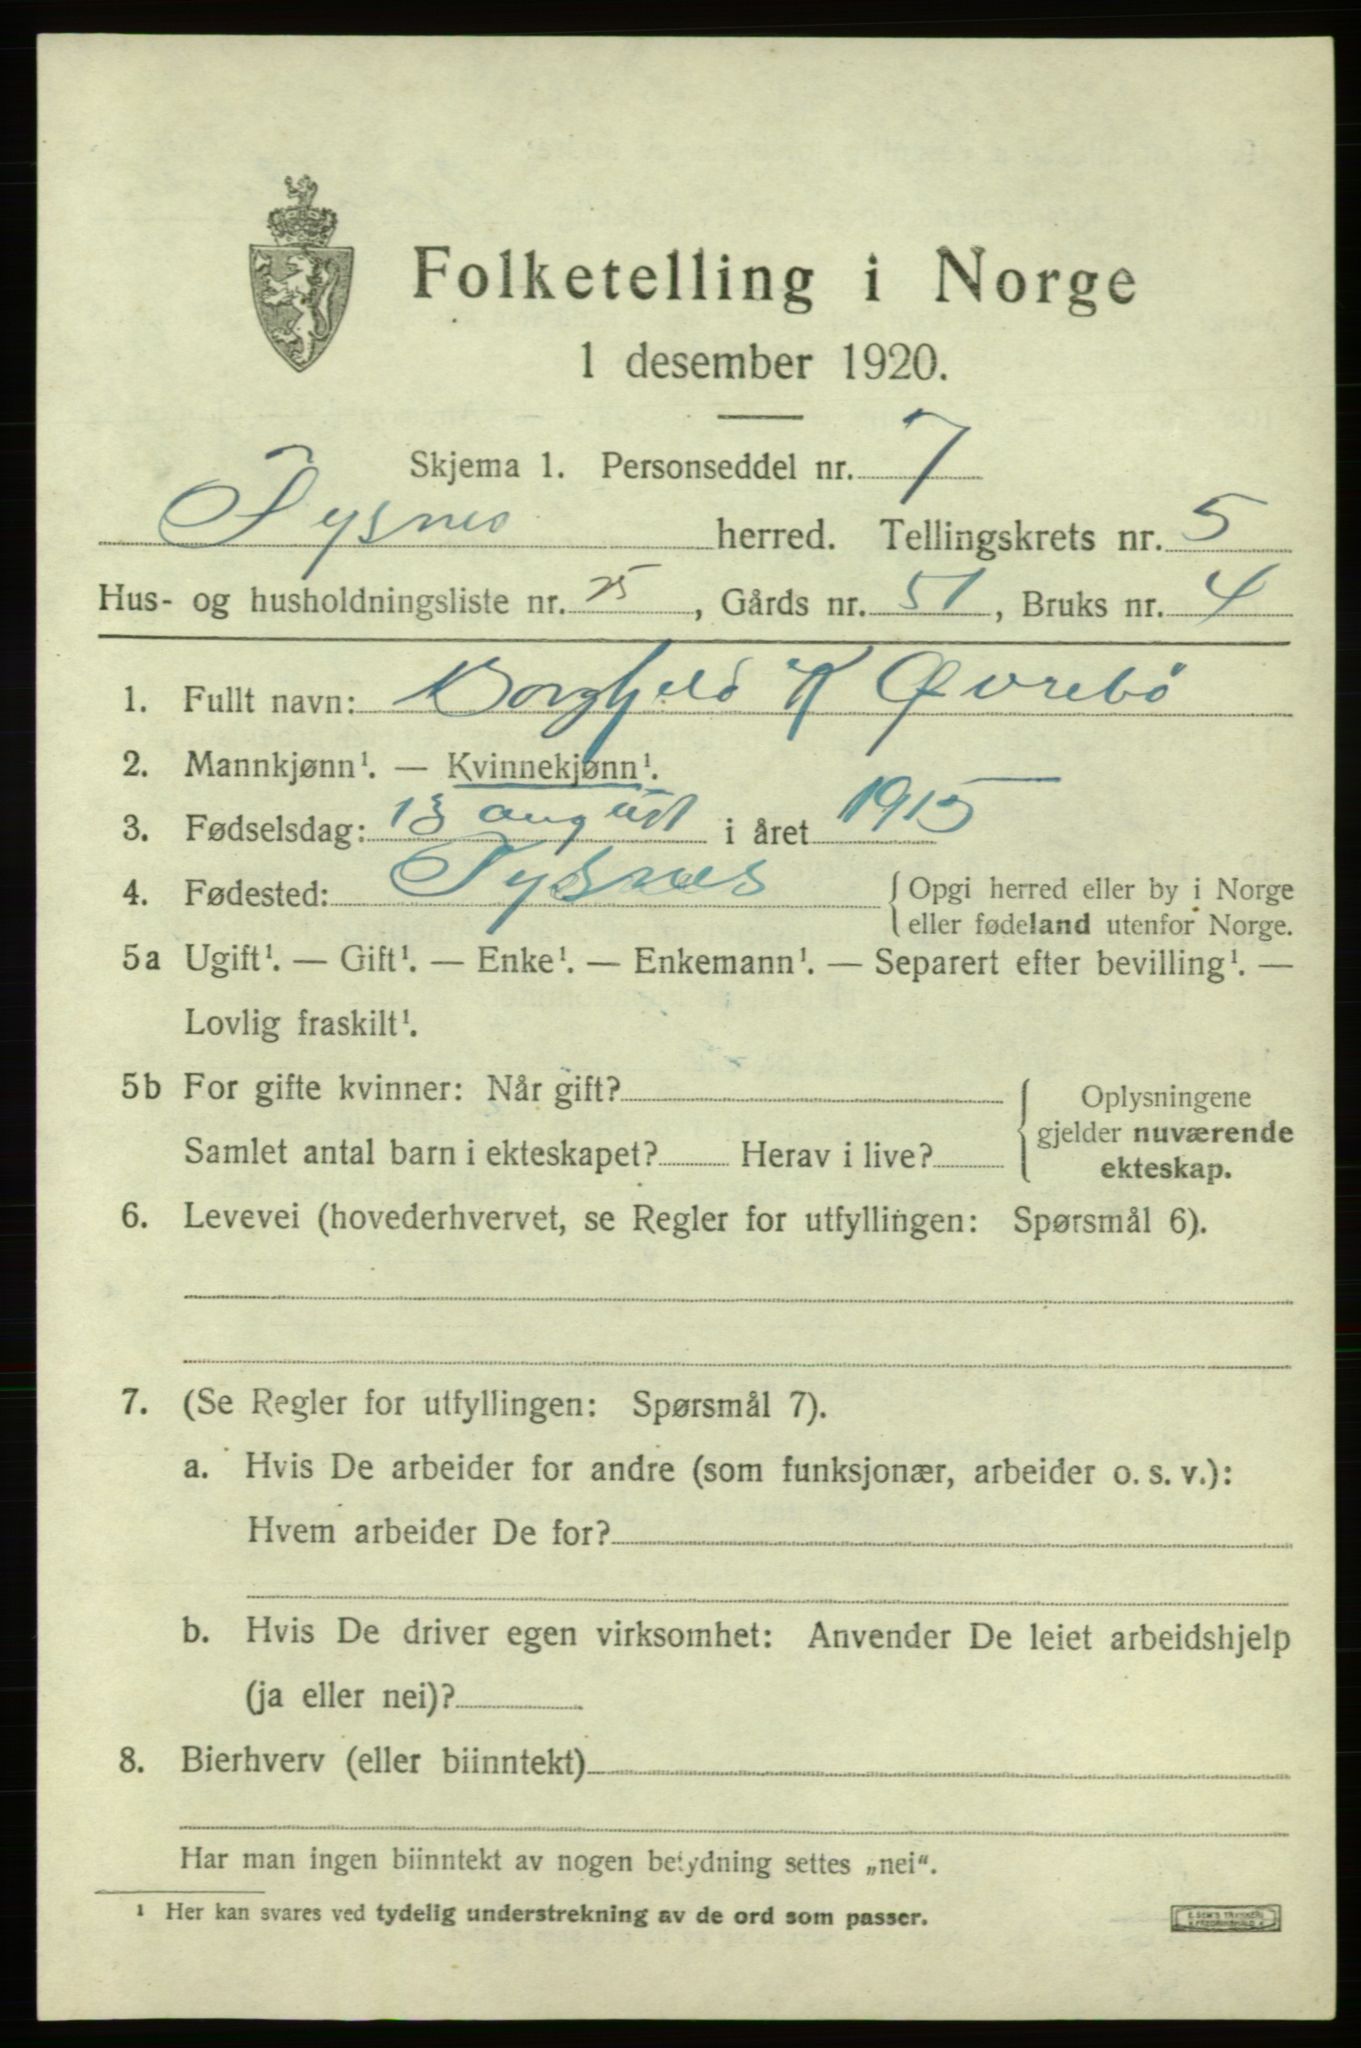 Folketelling i Norge
1 desember 1920.
Skjema 1. Personseddel nr. 7
Tysnes herred. Tellingskrets nr. 5
Hus- og husholdningsliste nr. 25, Gårds nr. 51, Bruks nr. 4
1. Fullt navn: Borghild K Øvrebö
2. Mannkjønn¹. — Kvinnekjønn¹.
3. Fødselsdag: 13 august i året 1915
4. Fødested: Tysnes {Opgi herred eller by i Norge
eller fødeland utenfor Norge.
5a Ugift¹. — Gift¹. — Enke¹. — Enkemann¹. — Separert efter bevilling¹. —
Lovlig fraskilt¹.
5b For gifte kvinner: Når gift?
Samlet antal barn i ekteskapet? Herav i live?
Oplysningene
gjelder nuværende
ekteskap.
6. Levevei (hovederhvervet, se Regler for utfyllingen: Spørsmål 6).
7. (Se Regler for utfyllingen: Spørsmål 7).
a. Hvis De arbeider for andre (som funksjonær, arbeider o. s. v.):
Hvem arbeider De for?
b. Hvis De driver egen virksomhet: Anvender De leiet arbeidshjelp
(ja eller nei)?
8. Bierhverv (eller biinntekt)
Har man ingen biinntekt av nogen betydning settes „nei“.
¹ Her kan svares ved tydelig understrekning av de ord som passer.